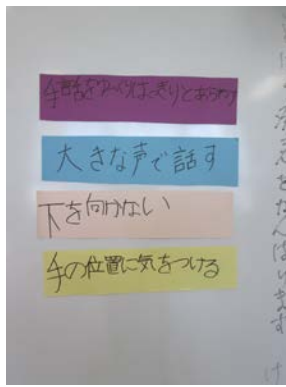 手話をゆっくりはっきりとあらわす
大きな声で話す
下を向かない
手の位置に気をつける